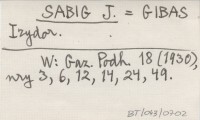 SABIG J. = GIBAS
Izydor.
W: Gaz. Podh. 18 (1930),
nry 3, 6, 12, 14, 24, 49.
BT/043/0702